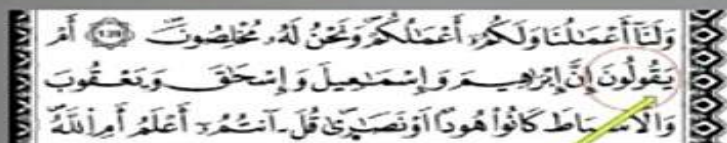 وَلَنَآ أَعْمَـٰلُنَا وَلَكُمُۥٓ أَعْمَـٰلُكُمْ وَنَحْنُ لَهُۥ مُخْلِصُونَ أَمْ
يَقُولُونَ إِنَّ إِبْرَٰهِيمَ وَإِسْمَـٰعِيلَ وَإِسْحَـٰقَ وَيَعْقُوبَ
وَالَاسْبَاطَ كَانُوا۟ هُودًا اَوْ نَصَـٰرَىٰ قُلَ ـآنتُمُۥٓ أَعْلَمُ أَمِ اِللَّهُ